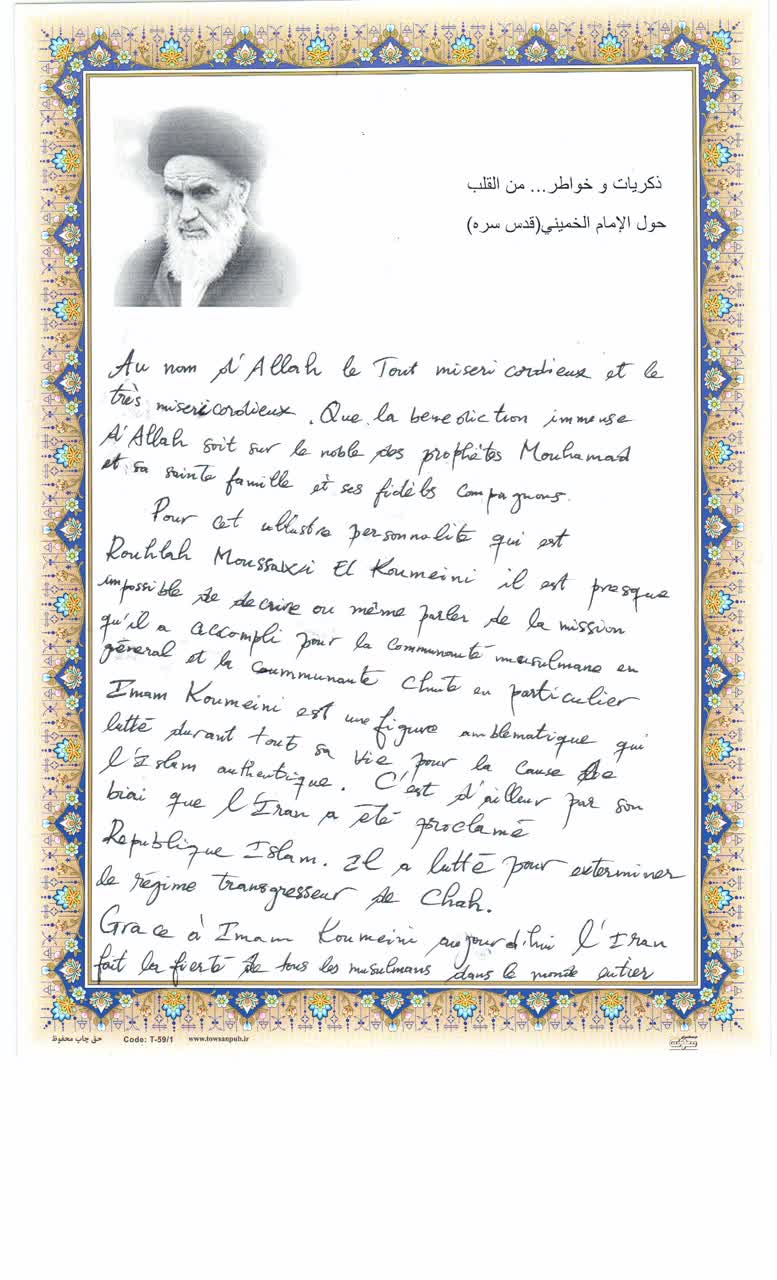 ذكريات و خواطر... من القلب
حول الإمام الخميني(قدس سره)
Au nom d'Allah le Tout miseri cordieux et le
très misericordieux. Que la benediction immense
d'Allah soit sur le noble des prophètes Mouhamad
et sa sainte famille et ses fidèles compagnons.
Pour cet illustre personnalité qui est
Rouhlah Moussawi El Koumeini il est presque
impossible de decrire ou même parler de la mission
qu'il a accompli pour la communauté musulmane en
général et la communauté chiite en particulier
Imam Koumeini est une figure amblematique qui
lutté durant tout sa vie pour la cause de
l'Islam authentique. C'est d'ailleur par son
biai que l'Iran a été proclamé
Republique Islam. Il a lutté pour exterminer
de régime transgresseur de Chah.
Grace à Imam Koumeini aujourd'hui l'Iran
fait la fierté de tous les musulmans dans le monde entier
حق چاپ محفوظ Code: T-59/1 www.towsanpub.ir